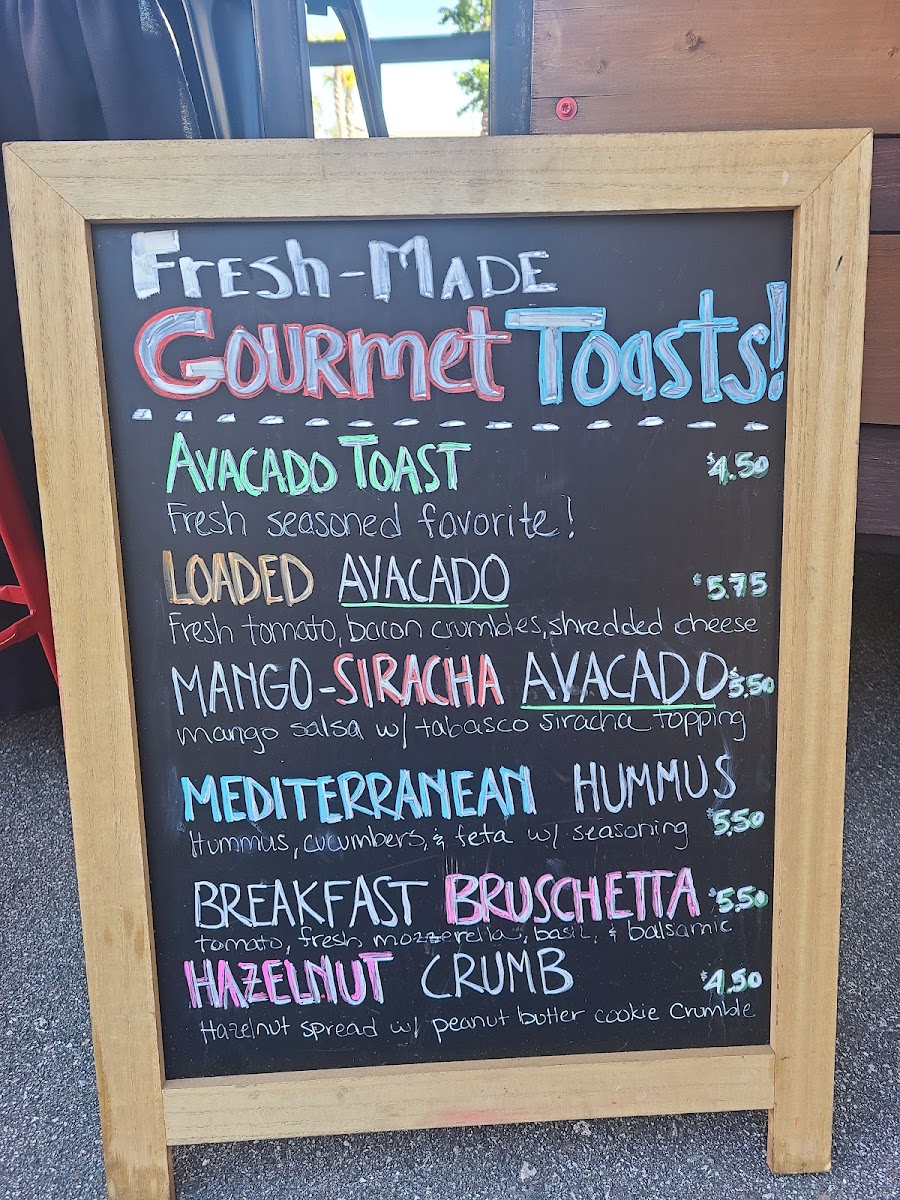 Fresh-Made
Gourmet Toasts!
Avacado Toast $4.50
Fresh seasoned favorite!
LOADED AVACADO $5.75
Fresh tomato, bacon crumbles, shredded cheese
MANGO-SIRACHA AVACADO $5.50
mango salsa w/ tabasco siracha topping
MEDITERRANEAN HUMMUS
Hummus, cucumbers, & feta w/ seasoning $5.50
BREAKFAST BRUSCHETTA $5.50
tomato, fresh mozzerella, basil, & balsamic
HAZELNUT CRUMB $4.50
Hazelnut spread w/ peanut butter cookie crumble